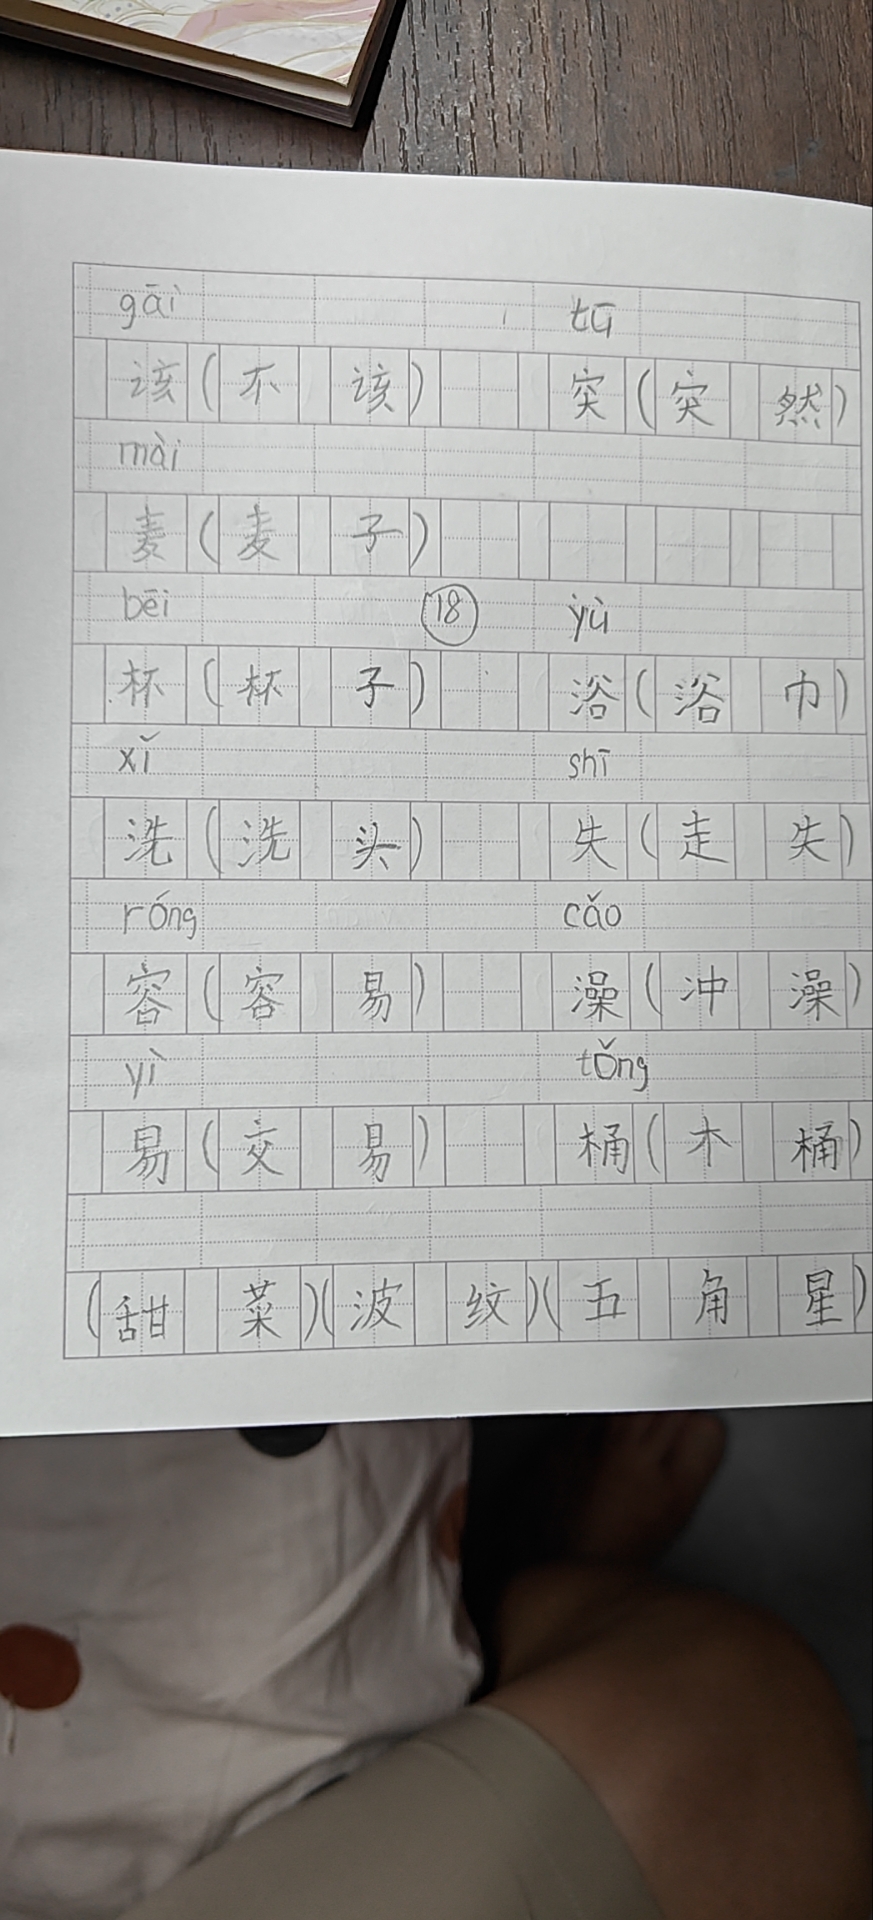 gāi tū
该(不该) 突(突然)
mài
麦(麦子)
bēi 18 yù
杯(杯子) 浴(浴巾)
xǐ shī
洗(洗头) 失(走失)
róng cǎo
容(容易) 澡(冲澡)
yì tǒng
易(交易) 桶(木桶)
(甜菜)(波纹)(五角星)